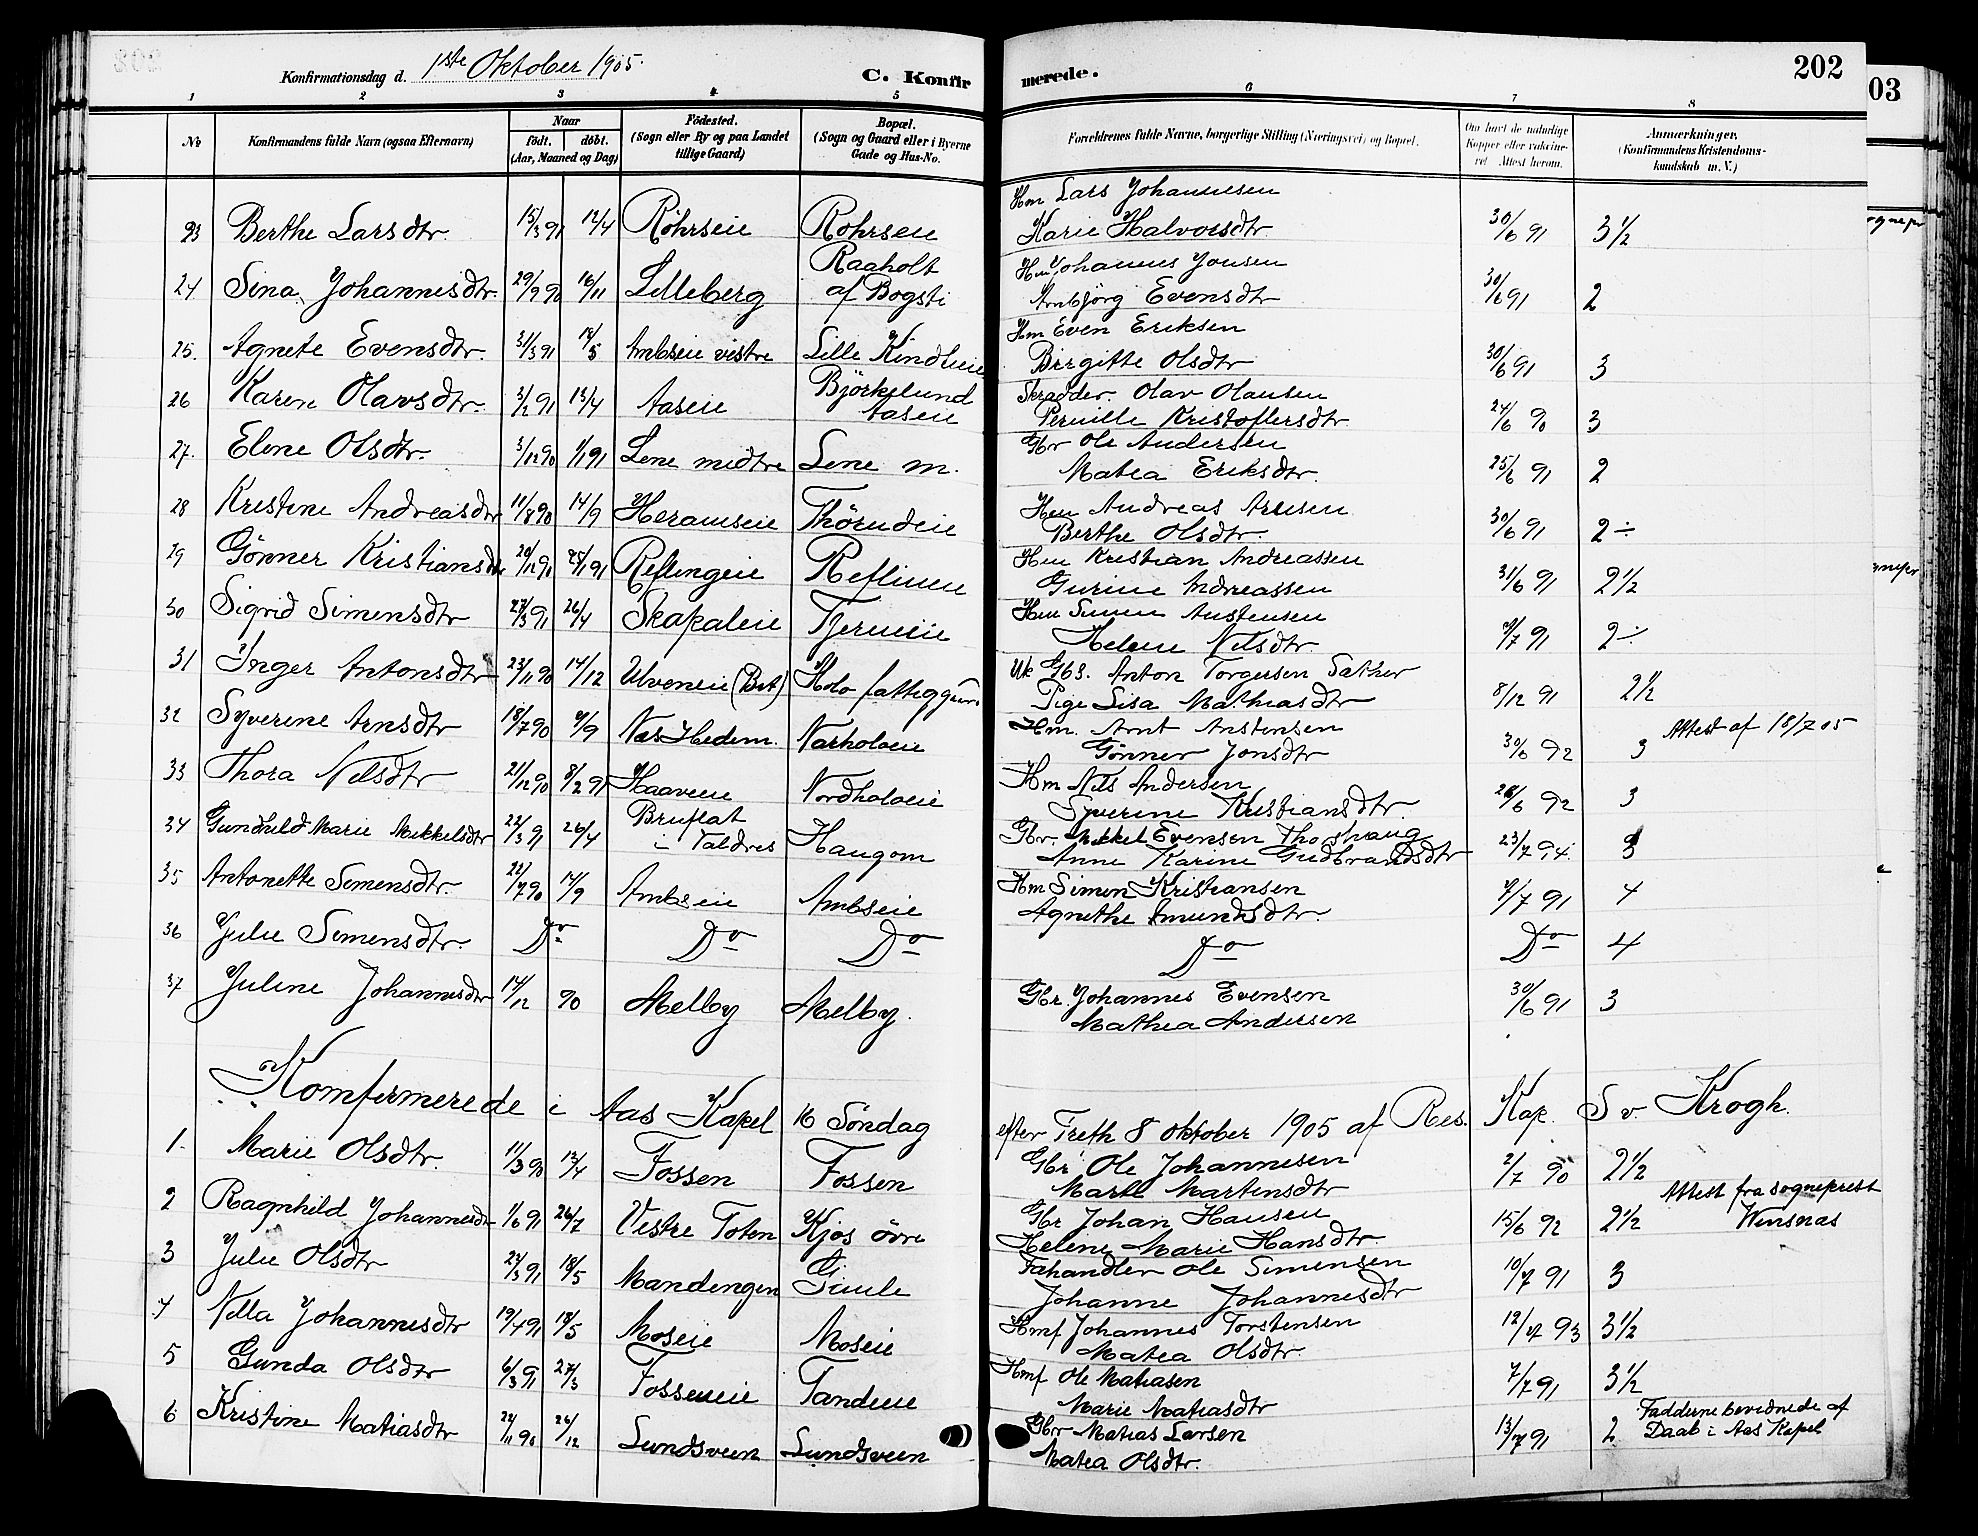 Konfirmationsdag d. 1ste Oktober 1905.
C. Konfirmerede.
202
03
1 2 3 4 5 6 7 8
No
Konfirmandens fulde Navn (ogsaa Efternavn)
Naar
født. døbt.
(Aar, Maaned og Dag)
Fødested.
(Sogn eller By og paa Landet
tillige Gaard)
Bopæl.
(Sogn og Gaard eller i Byerne
Gade og Hus-No.
Forældrenes fulde Navne, borgerlige Stilling (Næringsvei) og Bopæl.
Om havt de naturlige
Kopper eller vaccineret
Attest herom.
Anmærkninger.
(Konfirmandens Kristendoms-
kundskab m. V.)
Hm Lars Johannesen
23 Berthe Larsdtr. 15/3 91 12/4 Røhrseie Rohrseie Karie Halvorsdtr 30/6 91 3 1/2
Raaholt Hm Johannes Jonsen
24 Sina Johannesdtr. 29/9 90 16/11 Lilleberg af Bogsti Arnbjörg Evensdtr 30/6 91 2
Hm Even Eriksen
25. Agnete Evensdtr. 31/3 91 18/5 Ambseie vestre Lille Kindlieie Birgitte Olsdtr 30/6 91 3
Björkelund Skrædder. Olav Olausen
26 Karen Olavsdtr. 3/2 91 13/4 Aaseie Aaseie Pernille Kristoffersdtr 24/6 90 3
Gbr Ole Andersen
27. Elene Olsdtr. 3/12 90 1/1 91 Lene midtre Lene m. Matea Eriksdtr. 25/6 91 2
Hm Andreas Arnesen
28 Kristine Andreasdtr 11/8 90 14/9 Heramseie Thörudeie Berthe Olsdtr. 30/6 91 2 ÷
Hm Kristian Andreassen
29 Gönner Kristiansdtr 20/12 90 25/1 91 Reflingeie Reflinen Gurine Andreassen 31/6 91 2 1/2
Hm Simen Anstensen
30 Sigrid Simensdtr 27/3 91 26/4 Skapaleie Tjerneie Helene Nilsdtr 9/7 91 2 ÷
Uk Gbs. Anton Torgersen Sæther
31 Inger Antonsdtr 23/11 90 14/12 Ulveneie (Brt) Holo fattiggaard Pige Lisa Mathiasdtr 8/12 91 2 1/2
Hm. Arnt Anstensen
32 Syverine Arnsdtr 18/7 90 9/9 Næs Hedem. Narholoeie Gönner Jonsdtr 30/6 92 3 Attest af 18/7 05
Hm Nils Andersen
33 Thora Nilsdtr 21/12 90 8/2 91 Haaveie Nordholoeie Syverine Kristiansdtr. 28/6 92 3
Bruflat Gbr. Mikkel Evensen Thorshaug
34 Gundhild Marie Mikkelsdtr 22/3 91 26/4 i Valdres Haugom Anne Karine Gudbrandsdtr 23/7 94. 3
Hm Simen Kristiansen
35 Antonette Simensdtr. 22/7 90 14/9 Ambseie Ambseie Agnethe Amundsdtr. 9/7 91 4
36 Julie Simensdtr. Do Do Do Do Do 4
37 Juline Johannesdtr 14/12 90 Melby Melby. Gbr. Johannes Evensen 30/6 91 3
Mathea Andersen
Komfirmerede i Aas Kapel 16 Söndag efter Treth 8 oktober 1905 af Res. Kap. S v. Krogh.
1. Marie Olsdtr. 11/3 90 13/4 Fossen Fossen Gbr Ole Johannesen 2/7 90 2 1/2
Marte Martensdtr
2 Ragnhild Johannesdtr 1/6 91 26/7 Vestre Toten Kjos övre Gbr Johan Hansen 15/6 92 2 1/2 Attest fra sogneprest
Helene Marie Hansdtr. Winsnæs
3 Julie Olsdtr 22/3 91 18/5 Mandengen Giule Fæhandler Ole Simensen 10/7 91 3
Johanne Johannesdtr
4 Nella Johannesdtr 19/4 91 18/5 Moseie Moseie Hmf Johannes Torstensen 12/7 93 3 1/2
Matea Olsdtr.
5 Gunda Olsdtr 6/3 91 27/3 Fosseneie Tandeie Hmf Ole Matiasen 7/7 91 3 1/2
Marie Matiasdtr
6 Kristine Matiasdtr 22/11 90 26/12 Lundsveen Lundsveen Gbr Matias Larsen 13/7 91 2 Fadderne bevidnede af
Matea Olsdtr. Daab i Aas Kapel